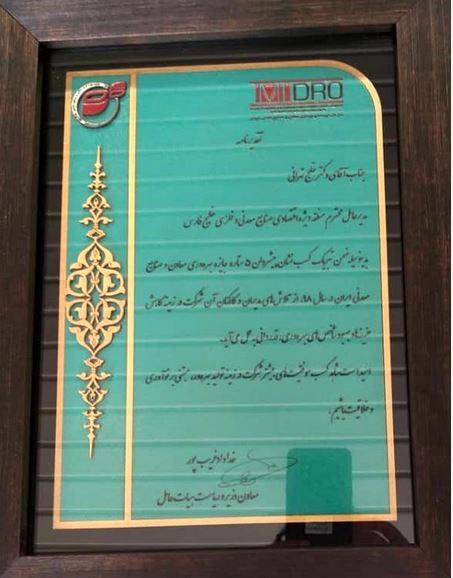 IMIDRO
تقدیرنامه
جناب آقای دکتر خلج تهرانی
مدیرعامل محترم منطقه ویژه اقتصادی صنایع معدنی و فلزی خلیج فارس
بدینوسیله ضمن تبریک کسب نشان پیشرو ۵ ستاره جایزه بهره‌وری معادن و صنایع
معدنی ایران در سال ۹۸، از تلاش های مدیران و کارکنان آن شرکت در زمینه کاهش
هزینه‌ها و بهبود شاخص های بهره‌وری، قدردانی به عمل می آید.
امید است شاهد کسب موفقیت‌های بیشتر شرکت در زمینه تولید بهره‌ور، مبتنی بر نوآوری
و خلاقیت باشیم.
خداداد غریب پور
معاون وزیر و ریاست هیات عامل